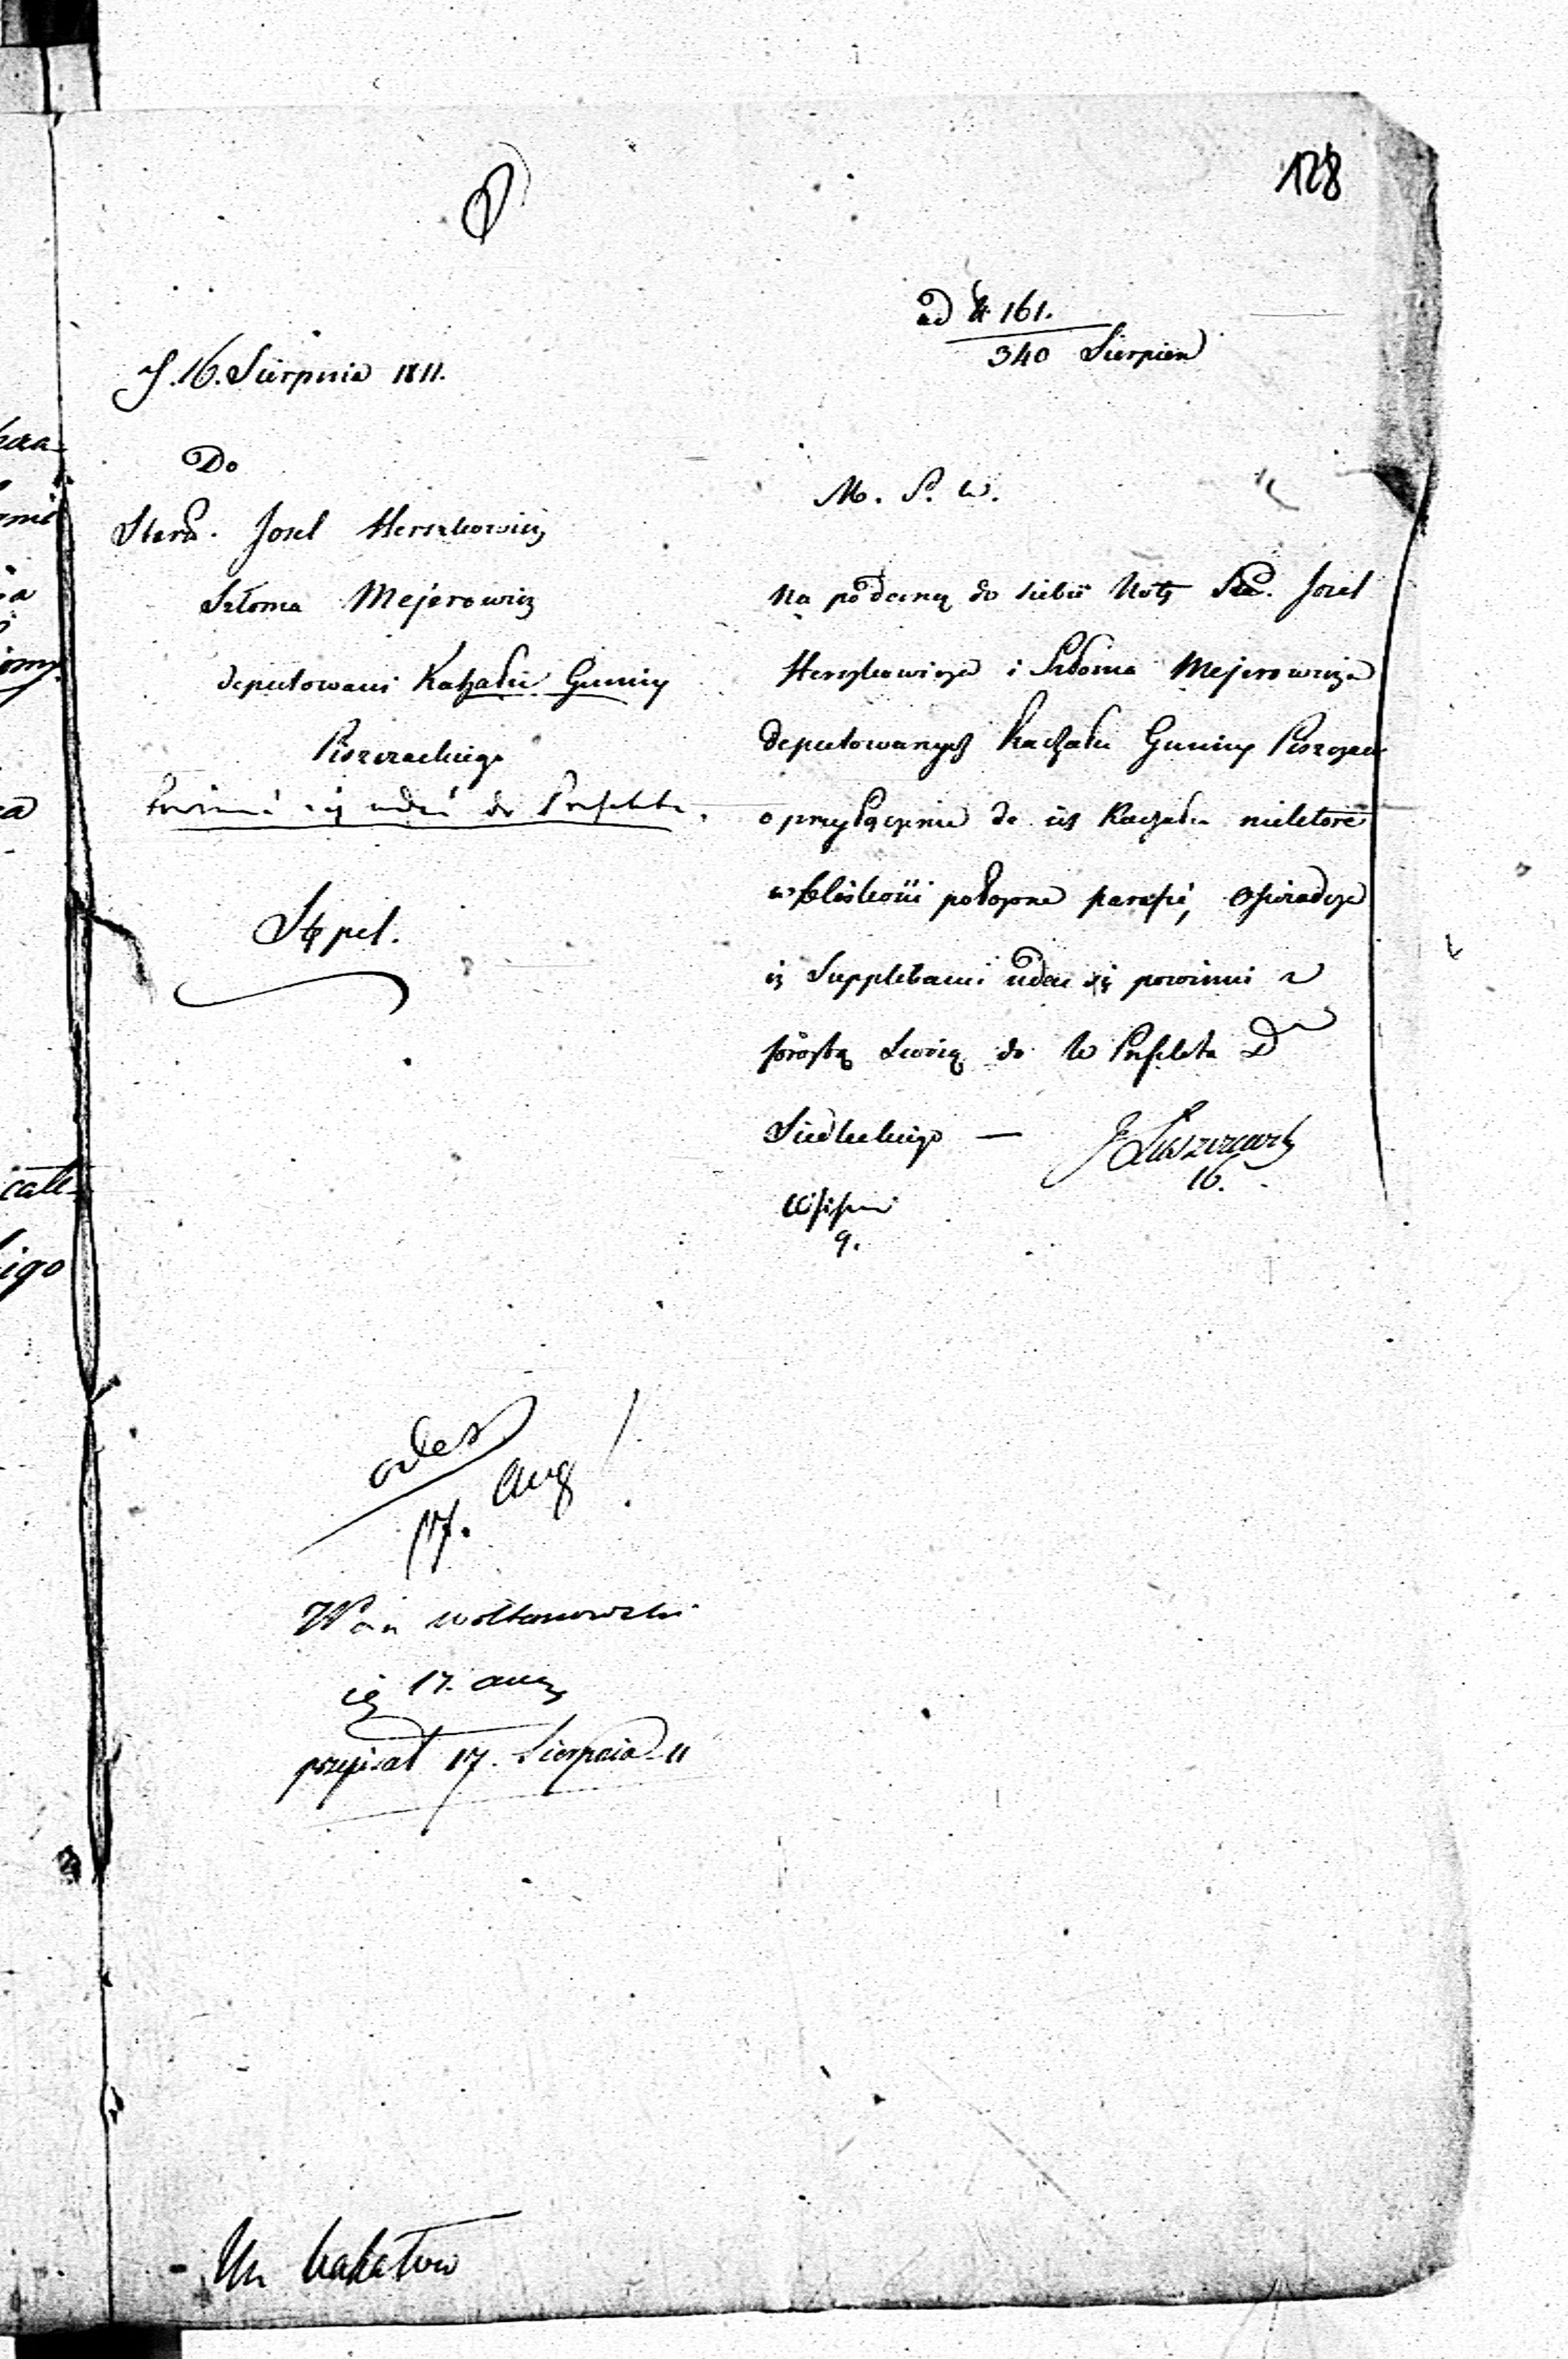 128
ad N 161.
340 Sierpien
d. 16. Sierpnia 1811.
Do
Staro. Josel Herszkowicz
Szloma Mejerowicz
deputowani Kahału Gminy
Piszczackiego
Powinni się udać do Prefekta.
Stępel.
M. S. W.
Na podaną do siebie Notę Sta. Josel
Herszkowicza i Szloma Mejerowicza
deputowanych Kachału Gminy Piszczac
o przyłączenie do ich Kachału niektore
w bliskości położone parafie, oświadcza
iż Supplikanci udać się powinni z
prośbą swoią do W Prefekta D
Siedleckiego — J Łuszczewski
16.
9.
odes
17. Aug
Wołkanowski
17. aug
przepisał 17. Sierpnia 11
Kahałów